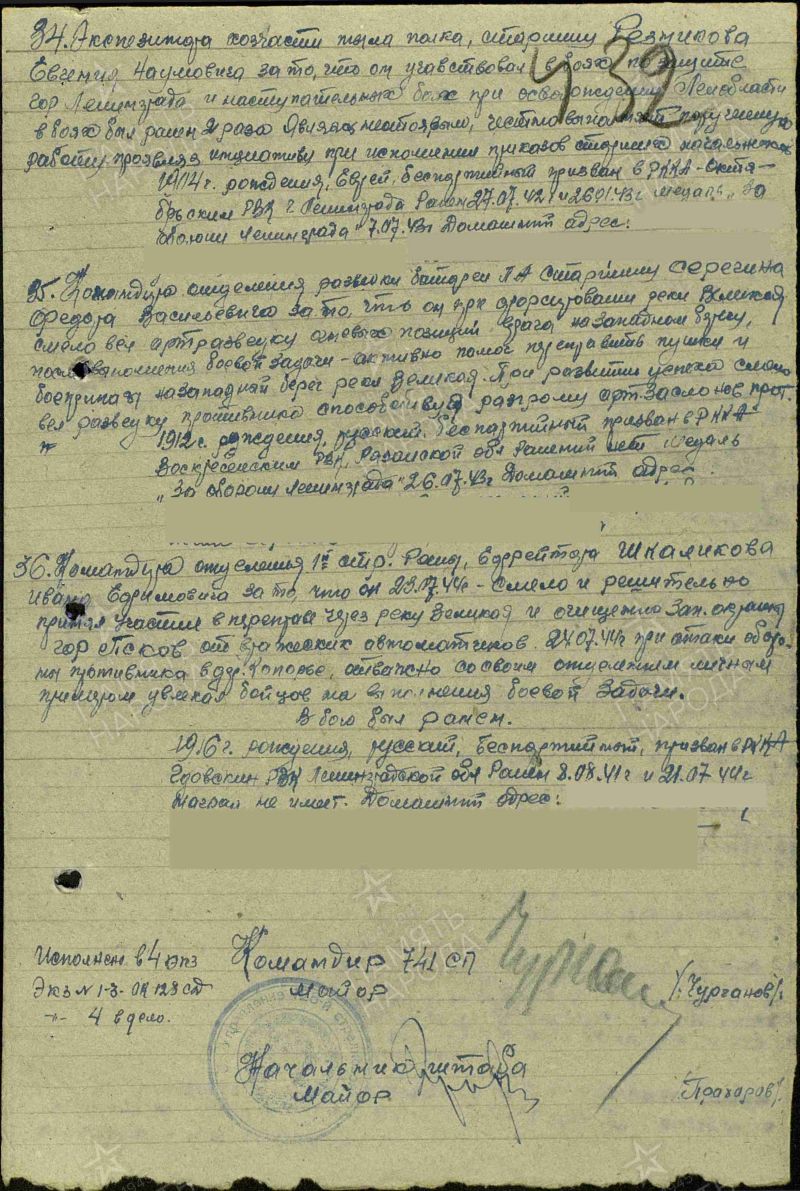 34. Экспедитора хозчасти тыла полка, старшину Резникова
Евгения Наумовича за то, что он участвовал в боях по защите
гор Ленинграда и наступательных боях при освобождении Ленобласти
в боях был ранен 2 раза честно выполняет порученную
работу проявляя инициативу при исполнении приказов старших начальников
1914 г. рождения, Еврей, беспартийный призван в РККА - Октя-
брьским РВК г. Ленинграда Ранен 27.07.42 г и 26.01.43 г медаль "За
оборону Ленинграда" 7.07.43 г Домашний адрес:
439
35. Командира отделения разведки батареи ПА Старшину Серегина
Федора Васильевича за то, что он при форсировании реки Великая
смело вел артразведку огневых позиций врага на западном берегу,
после выполнения боевой задачи - активно помог переправить пушки и
боеприпасы на западный берег реки Великой. При развитии успеха смело
вел разведку противника способствуя разгрому арт. заслонов прот-
ка
1912 г. рождения, русский беспартийный призван в РККА
Воскресенским РВК, Рязанской обл Ранений нет медаль
"За оборону Ленинграда" 26.07.43 г Домашний адрес:
36. Командира отделения 1й стр. Роты, Ефрейтора Шкаликова
Ивана Ефимовича за то, что он 23.07.44 г - смело и решительно
принял участие в переправе через реку Великая и очищению Зап. окраины
гор Псков от вражеских автоматчиков. 24.07.44 г при атаки оборо-
ны противника в дер. Копорье, отважно со своим отделением личным
примером увлекал бойцов на выполнения боевой задачи.
В бою был ранен.
рождения, русский, беспартийный, призван в РККА
Гдовским РВК Ленинградской обл Ранен 8.08.41 г и 21.07.44 г
Наград не имеет. Домашний адрес:
Исполнен. в 4 экз
Экз N 1-3 - ОК 128 СД
-"- 4 в дело.
Командир 741 СП
Майор
/:Чурганов:/
Начальник Штаба
Майор
/Прохоров/.
ПАМЯТЬ
НАРОДА